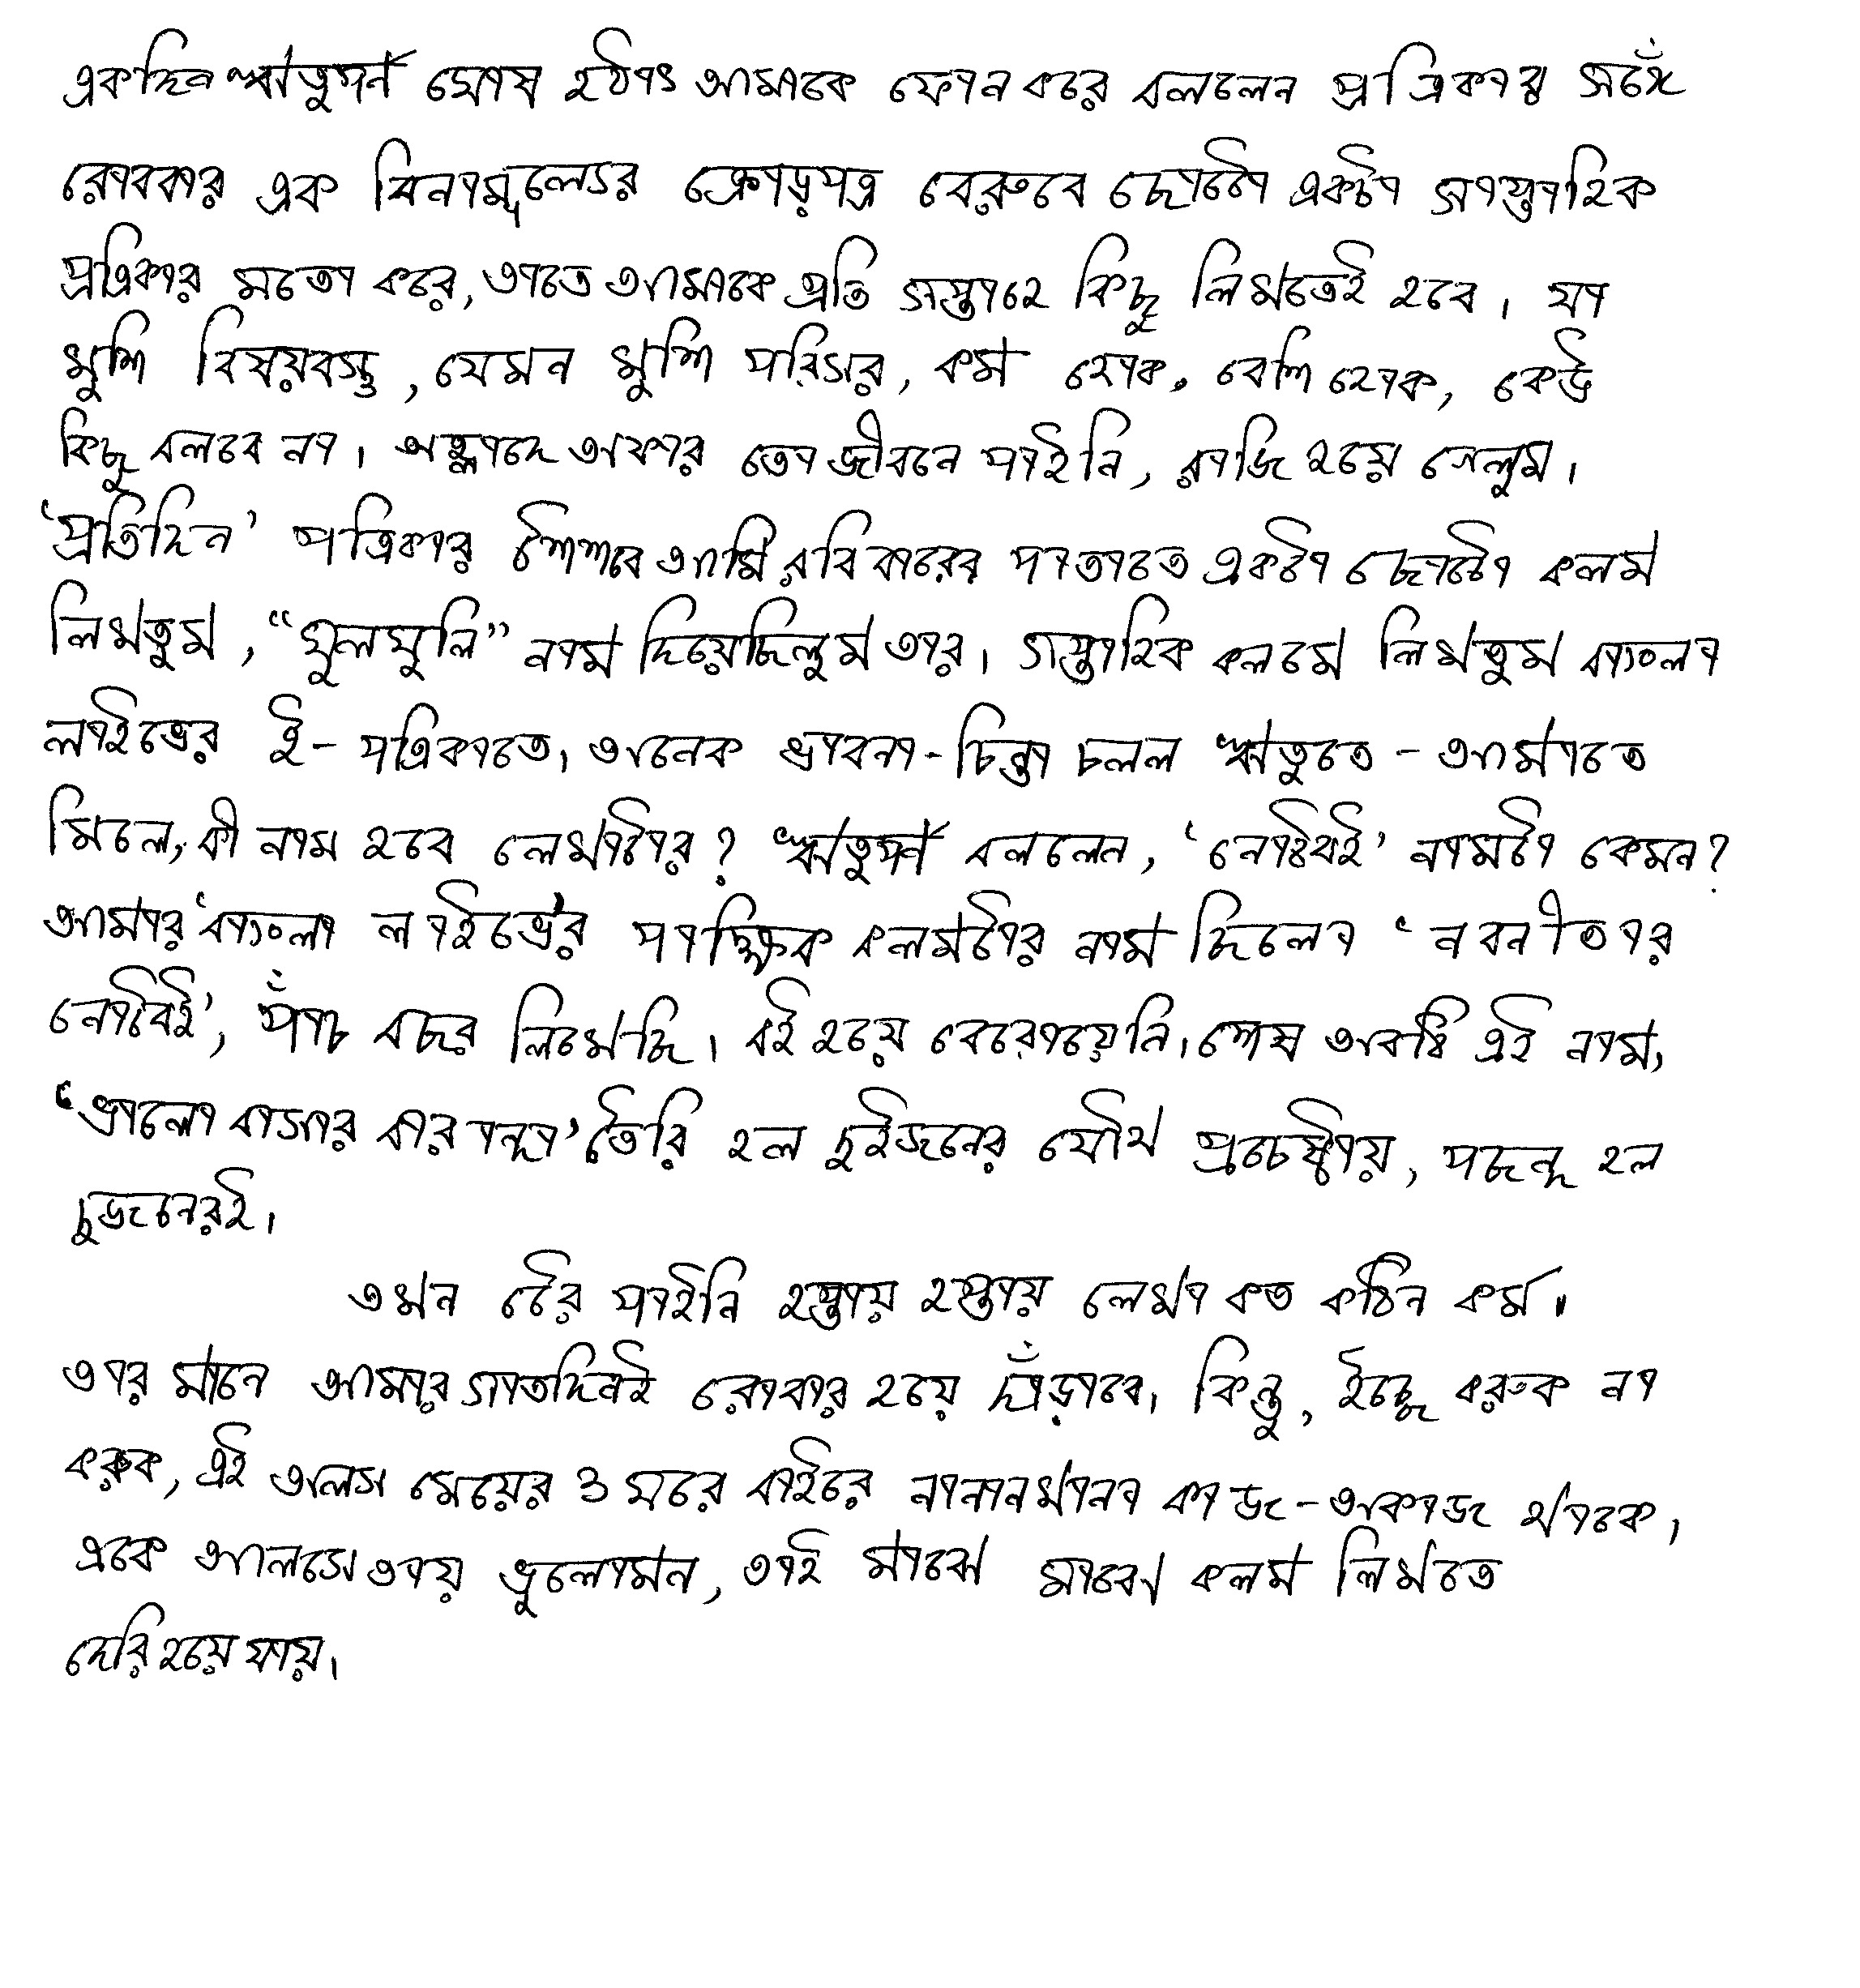 একদিন ঋতুপর্ণ ঘোষ হঠাৎ আমাকে ফোন করে বললেন পত্রিকার সঙ্গে
রোববার এক বিনামূল্যের ক্রোড়পত্র বেরুবে ছোটো একটা সাপ্তাহিক
পত্রিকার মতো করে, তাতে আমাকে প্রতি সপ্তাহে কিছু লিখতেই হবে। যা
খুশি বিষয়বস্তু, যেমন খুশি পরিসর, কম হোক, বেশি হোক, কেউ
কিছু বলবে না। অফার তো জীবনে পাইনি, রাজি হয়ে গেলুম।
'প্রতিদিন' পত্রিকার শৈশবে আমি রবিবারের পাতাতে একটা ছোটো কলম
লিখতুম, "ঘুলঘুলি" নাম দিয়েছিলুম তার। সপ্তাহিক কলমে লিখতুম বাংলা
লাইভের ই-পত্রিকাতে। অনেক ভাবনা-চিন্তা চলল ঋতুতে-আমাতে
মিলে, কী নাম হবে লেখাটার? ঋতুপর্ণ বললেন, 'নোটবই' নামটা কেমন?
আমার 'বাংলা লাইভে'র পাক্ষিক কলমটার নাম ছিলো 'নবনীতার
নোটবই', পাঁচ বছর লিখেছি। বই হয়ে বেরোয়নি। শেষ অবধি এই নাম,
'ভালোবাসার বারান্দা' তৈরি হল দুইজনের যৌথ প্রচেষ্টায়, পছন্দ হল
দুজনেরই।
তখন টের পাইনি হপ্তায় হপ্তায় লেখা কত কঠিন কর্ম।
তার মানে আমার সাতদিনই রোববার হয়ে দাঁড়াবে। কিন্তু, ইচ্ছে করুক না
করুক, এই অলস মেয়ের ও ঘরে বাইরে নানানখানা কাজ-অকাজ থাকে।
একে আলসে তায় ভুলোমন, তাই মাঝে মাঝে কলম লিখতে
দেরি হয়ে যায়।